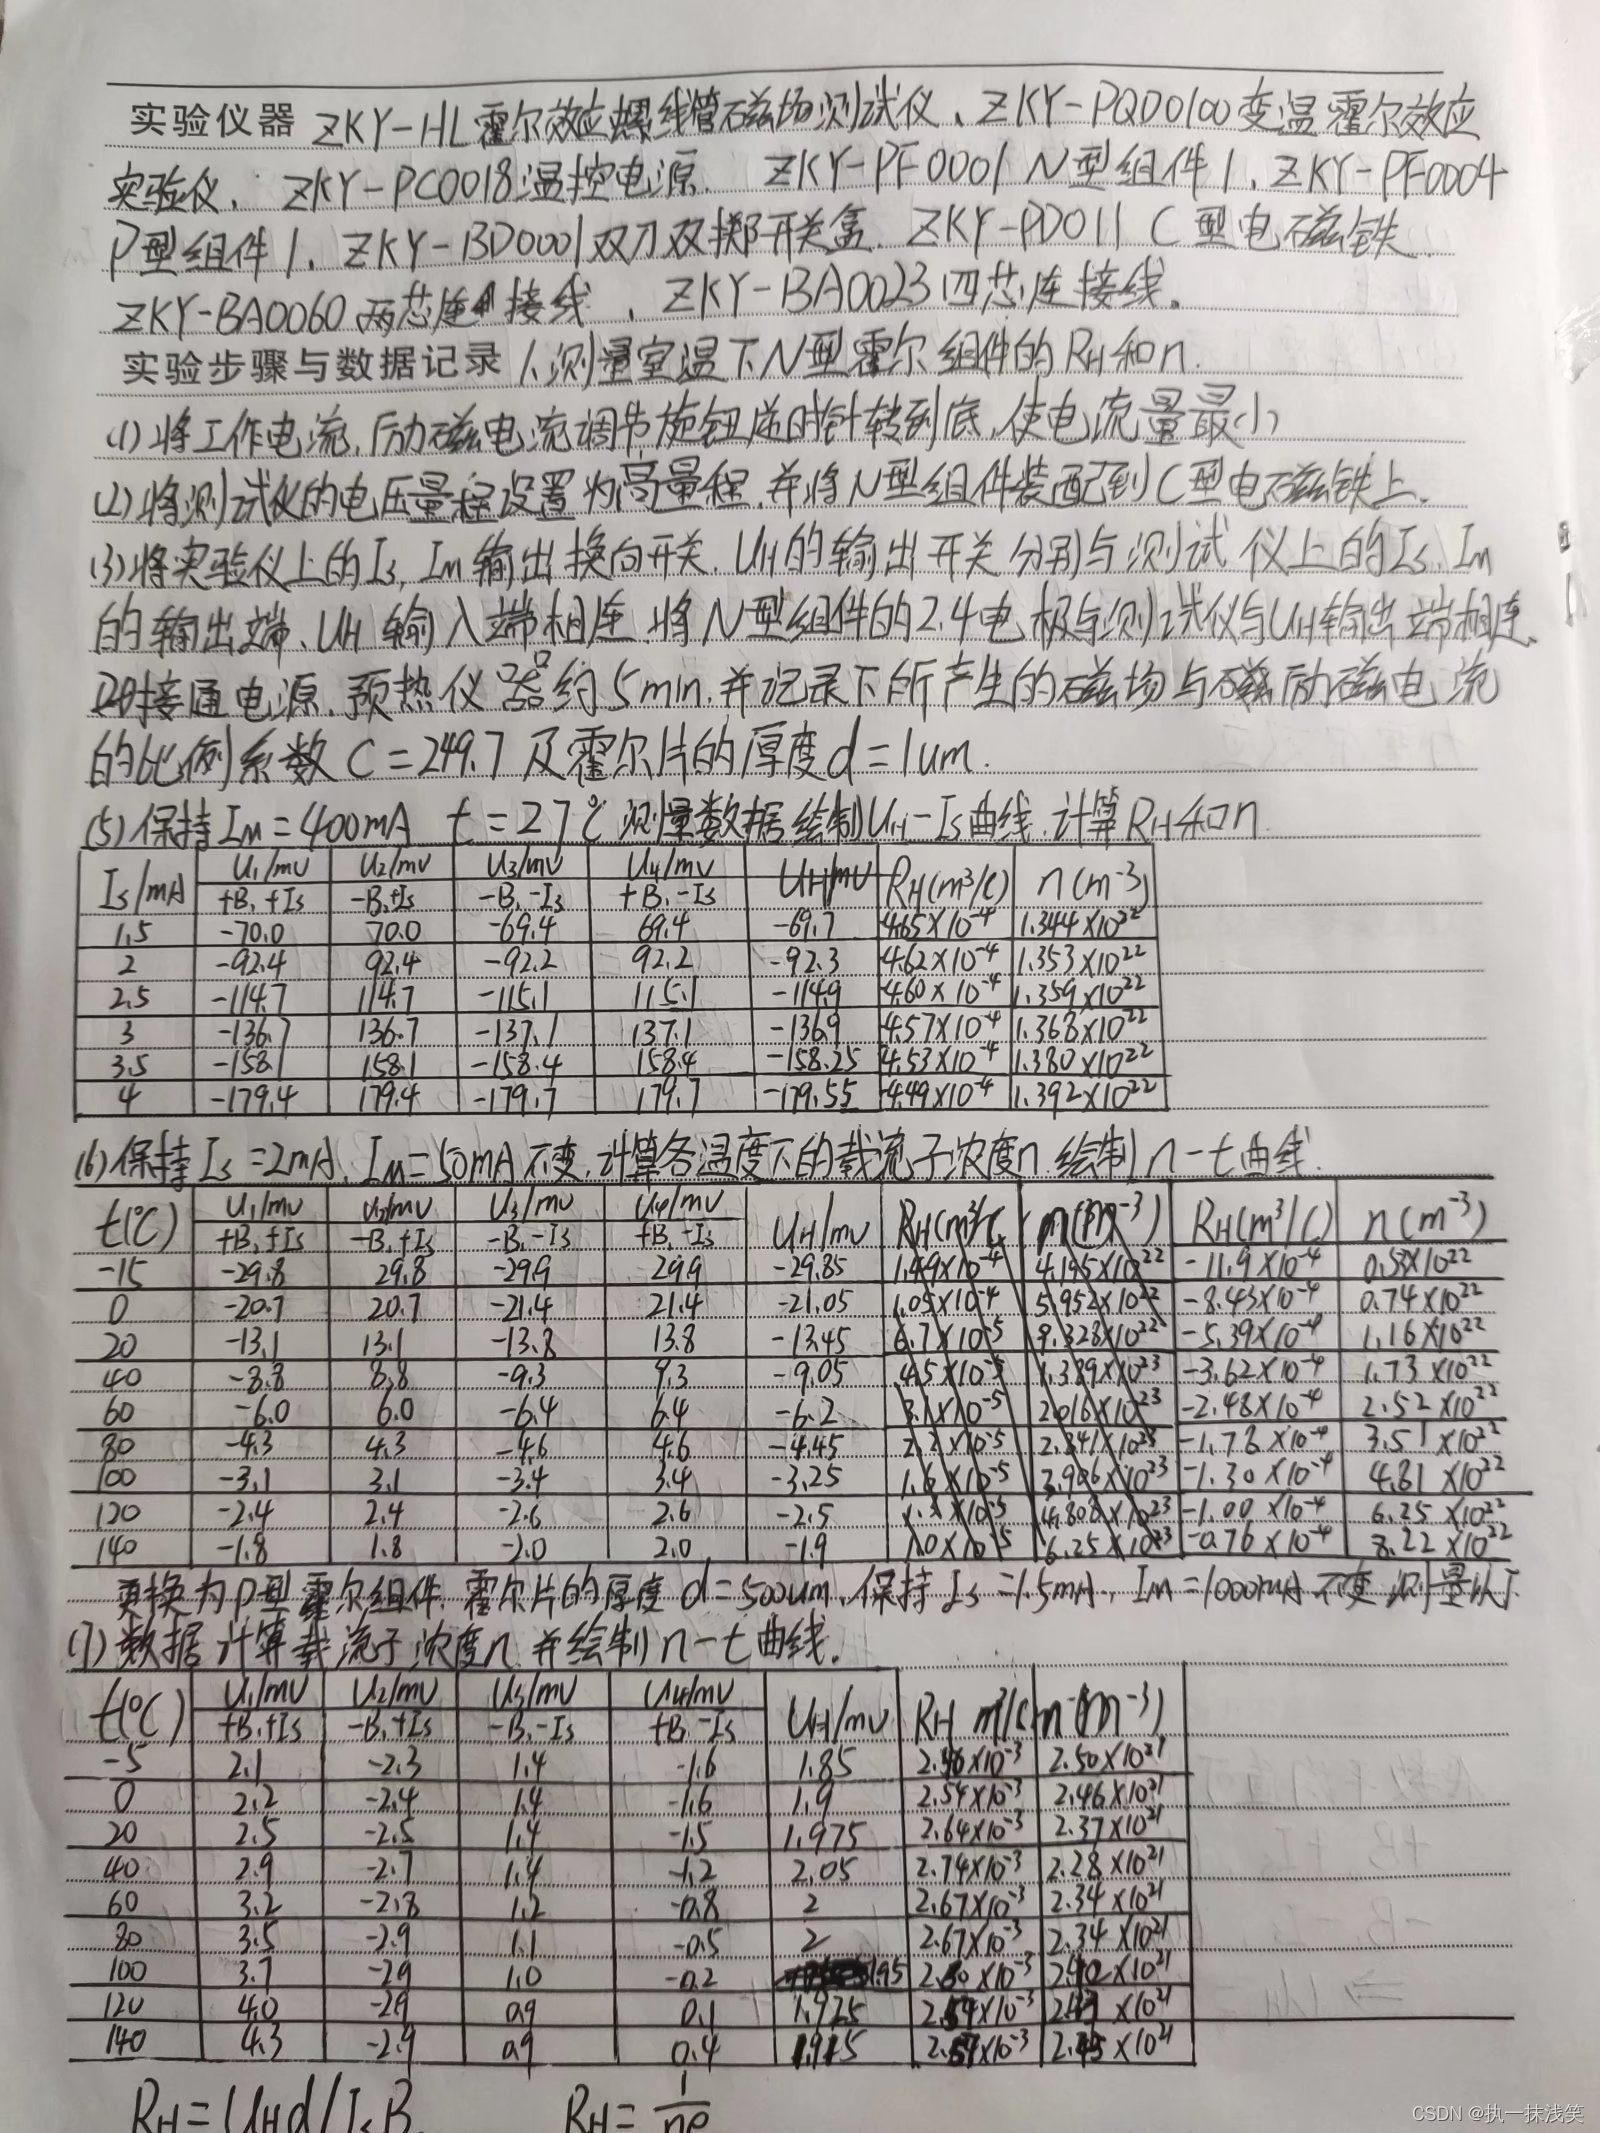 实验仪器 ZKY-HL霍尔效应螺线管磁场测试仪、ZKY-PQD0100变温霍尔效应
实验仪、ZKY-PC0018温控电源、ZKY-PF0001 N型组件1、ZKY-PF0004
P型组件1、ZKY-BD0001双刀双掷开关盒、ZKY-PD011 C型电磁铁、
ZKY-BA0060两芯连接线、ZKY-BA0023四芯连接线。
实验步骤与数据记录 1、测量室温下N型霍尔组件的RH和n.
(1)将工作电流,励磁电流调节旋钮逆时针转到底,使电流量最小
(2)将测试仪的电压量程设置为高量程,并将N型组件装配到C型电磁铁上.
(3)将实验仪上的Is, Im输出换向开关, UH的输出开关分别与测试仪上的Is, Im
的输出端、UH输入端相连.将N型组件的2.4电极与测试仪与UH输出端相连.
接通电源.预热仪器约5min,并记录下所产生的磁场与励磁电流
的比例系数C=249.7及霍尔片的厚度d=1um.
(5)保持IM=400mA t=27℃测量数据绘制UH-Is曲线.计算RH和n
Is/mA U1/mv U2/mv U3/mv U4/mv UH/mv RH(m³/C) n(m⁻³)
+B,+Is -B,+Is -B,-Is +B,-Is
1.5 -70.0 70.0 -69.4 69.4 -69.7 -4.65×10⁻⁴ 1.344×10²²
2 -92.4 92.4 -92.2 92.2 -92.3 -4.62×10⁻⁴ 1.353×10²²
2.5 -114.7 114.7 -115.1 115.1 -114.9 -4.60×10⁻⁴ 1.359×10²²
3 -136.7 136.7 -137.1 137.1 -136.9 -4.57×10⁻⁴ 1.368×10²²
3.5 -158.1 158.1 -158.4 158.4 -158.25 -4.53×10⁻⁴ 1.380×10²²
4 -179.4 179.4 -179.7 179.7 -179.55 -4.49×10⁻⁴ 1.392×10²²
(6)保持Is=2mA, IM=50mA不变,计算各温度下的载流子浓度n.绘制n-t曲线.
t(℃) U1/mv U2/mv U3/mv U4/mv UH/mv RH(m³/C) n(m⁻³) RH(m³/C) n(m⁻³)
+B,+Is -B,+Is -B,-Is +B,-Is
-15 -29.8 29.8 -29.9 29.9 -29.85 1.49×10⁻⁴ 4.195×10²² -11.9×10⁻⁴ 0.53×10²²
0 -20.7 20.7 -21.4 21.4 -21.05 1.05×10⁻⁴ 5.952×10²² -8.43×10⁻⁴ 0.74×10²²
20 -13.1 13.1 -13.8 13.8 -13.45 6.7×10⁻⁵ 9.328×10²² -5.39×10⁻⁴ 1.16×10²²
40 -8.8 8.8 -9.3 9.3 -9.05 4.5×10⁻⁵ 1.389×10²³ -3.62×10⁻⁴ 1.73×10²²
60 -6.0 6.0 -6.4 6.4 -6.2 3.1×10⁻⁵ 2.016×10²³ -2.48×10⁻⁴ 2.52×10²²
80 -4.3 4.3 -4.6 4.6 -4.45 2.2×10⁻⁵ 2.841×10²³ -1.78×10⁻⁴ 3.51×10²²
100 -3.1 3.1 -3.4 3.4 -3.25 1.6×10⁻⁵ 3.906×10²³ -1.30×10⁻⁴ 4.81×10²²
120 -2.4 2.4 -2.6 2.6 -2.5 4.808×10²³ -1.00×10⁻⁴ 6.25×10²²
140 -1.8 1.8 -2.0 2.0 -1.9 1.0×10⁻⁵ 6.25×10²³ -0.76×10⁻⁴ 8.22×10²²
更换为P型霍尔组件,霍尔片的厚度d=500um,保持Is=1.5mA, IM=1000mA不变,测量以下
(7)数据计算载流子浓度n,并绘制n-t曲线.
t(℃) U1/mv U2/mv U3/mv U4/mv UH/mv RH m³/C n(m⁻³)
+B,+Is -B,+Is -B,-Is +B,-Is
-5 2.1 -2.3 1.4 -1.6 1.85 2.46×10⁻³ 2.50×10²¹
0 2.2 -2.4 1.4 -1.6 1.9 2.54×10⁻³ 2.46×10²¹
20 2.5 -2.5 1.4 -1.5 1.975 2.64×10⁻³ 2.37×10²¹
40 2.9 -2.7 1.4 -1.2 2.05 2.74×10⁻³ 2.28×10²¹
60 3.2 -2.8 1.2 -0.8 2 2.67×10⁻³ 2.34×10²¹
80 3.5 -2.9 1.1 -0.5 2 2.67×10⁻³ 2.34×10²¹
100 3.7 -2.9 1.0 -0.2 1.95 2.60×10⁻³ 2.40×10²¹
120 4.0 -2.9 0.9 0.1 1.925
140 4.3 -2.9 0.9 0.4
RH=UHd/IsB. RH=1/ne
CSDN @执一抹浅笑